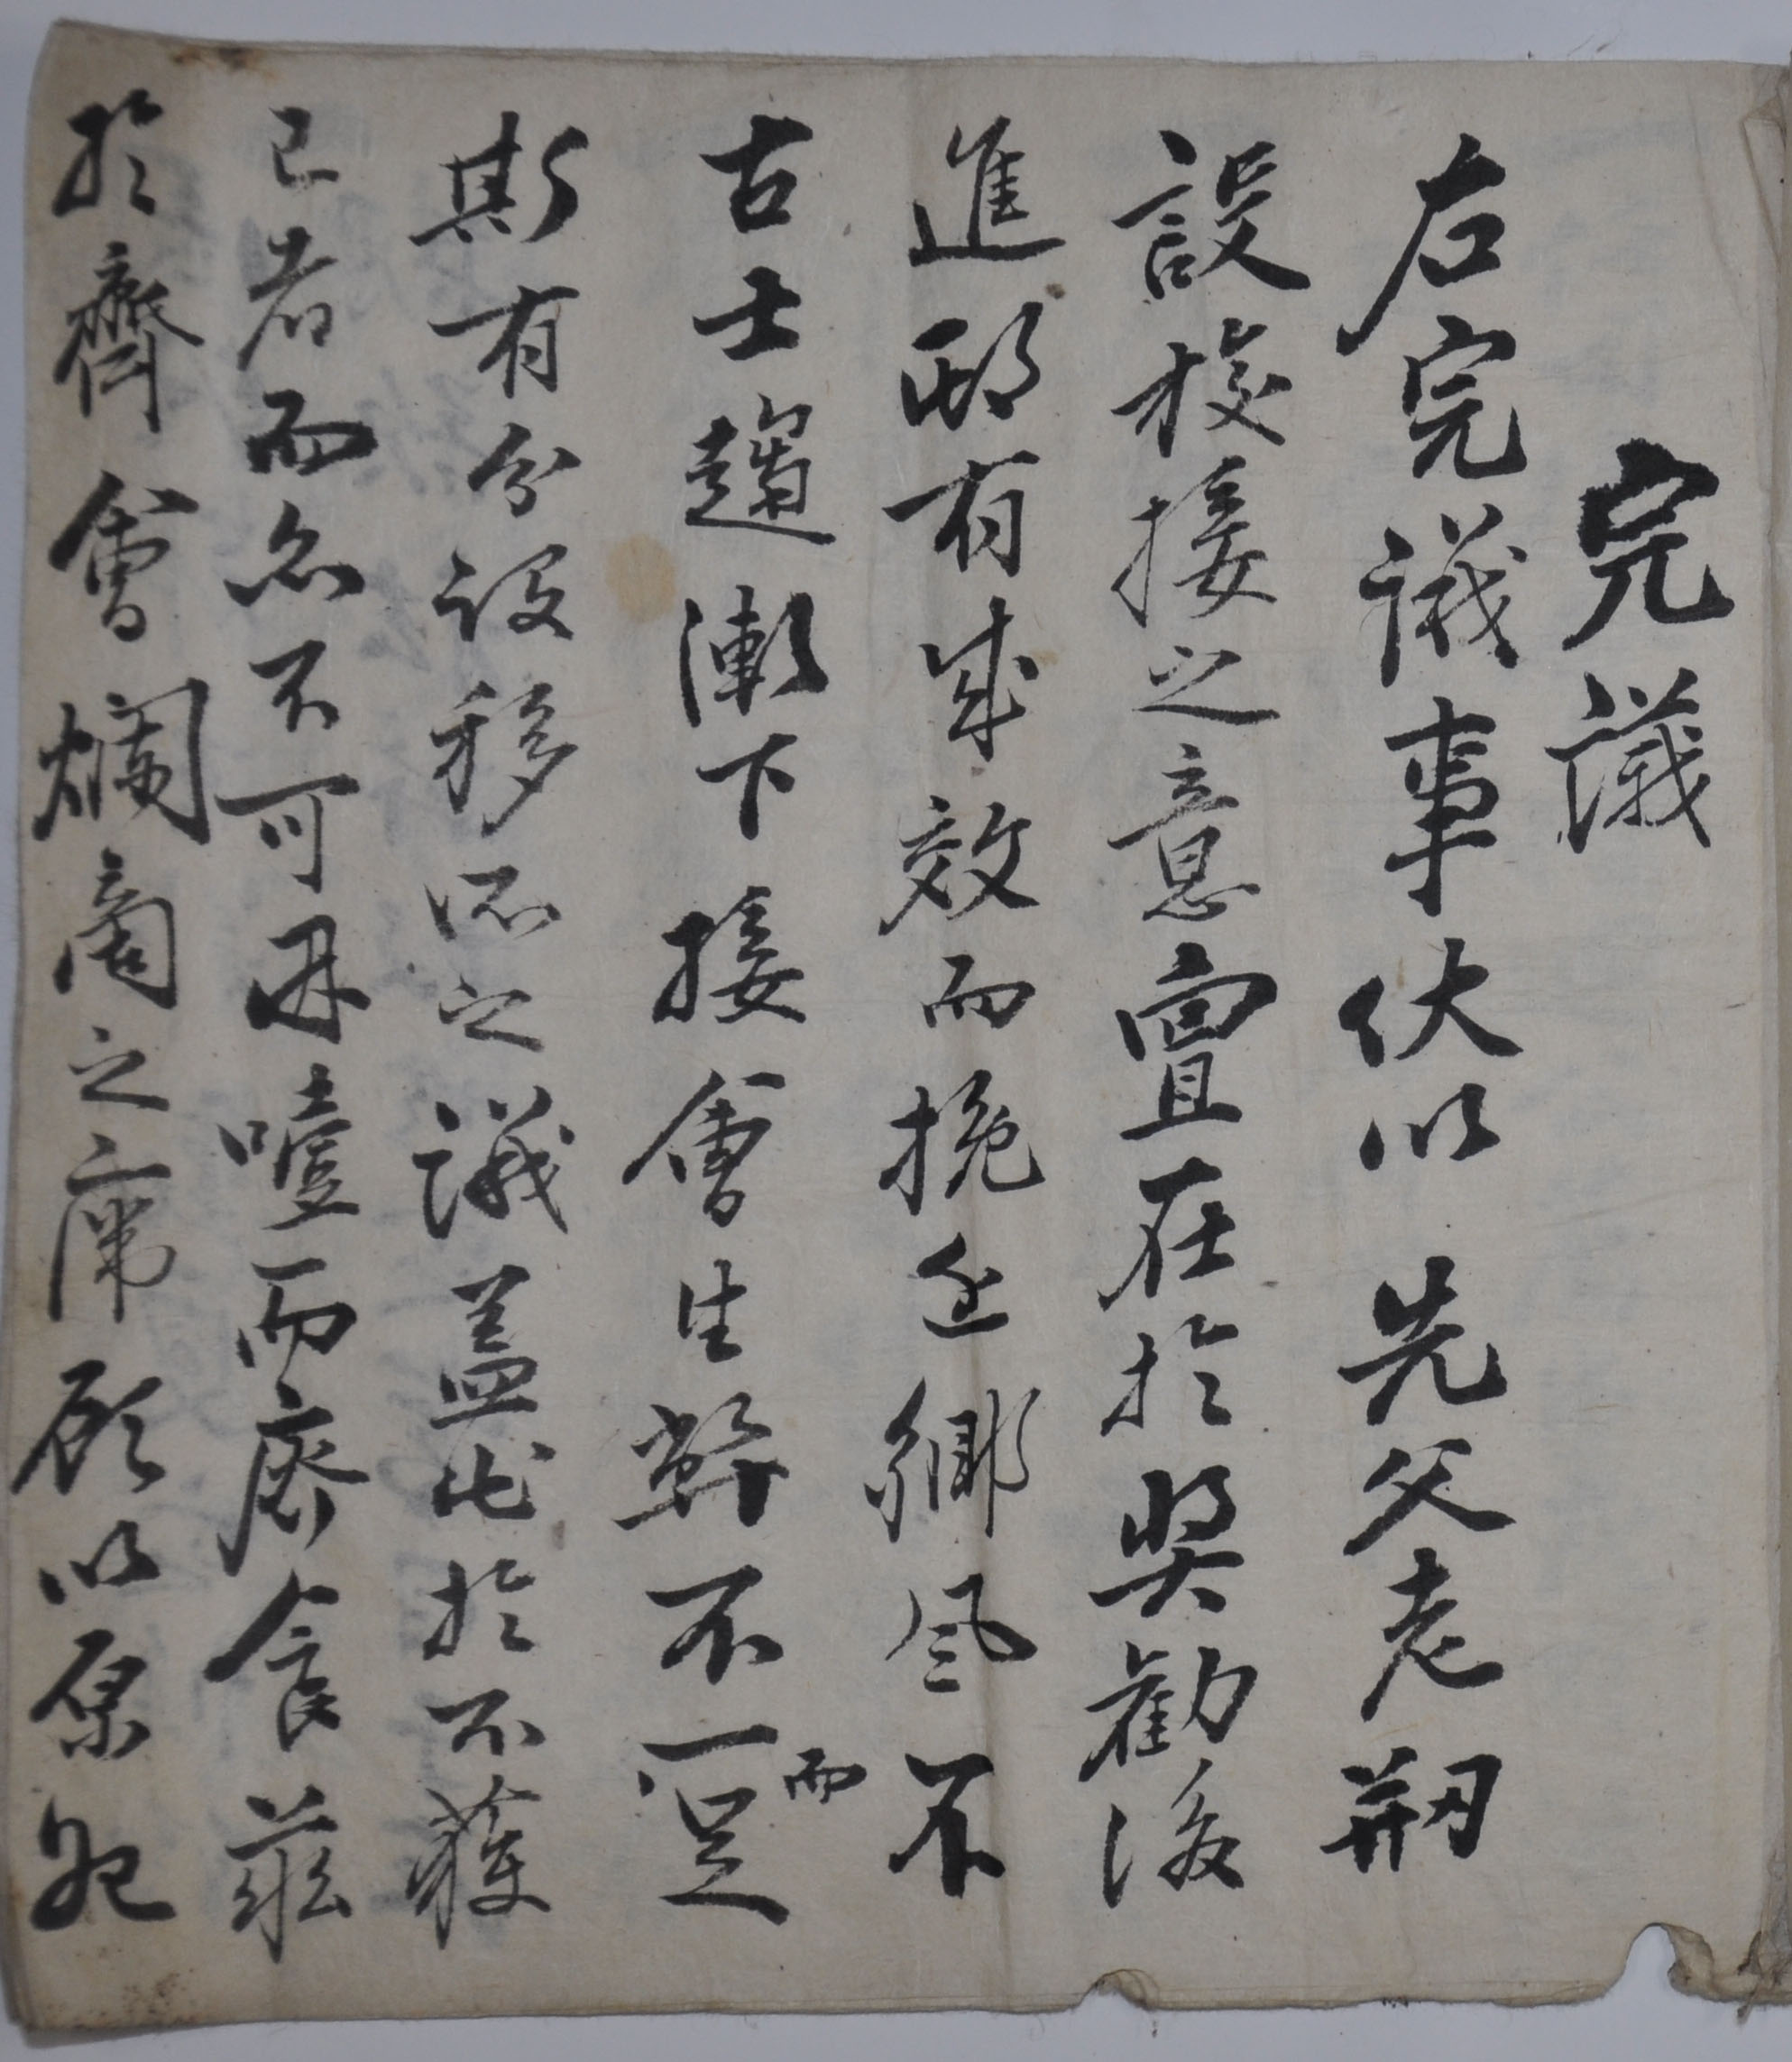 完議
右完議事伏以 先父老刱
設校接之意亶在於奬勸後
進邸有成效而挽近鄕風不
古士趨漸下接會生弊不一而足
斯有分設移所之議盖出於不獲
已者而亦不可因噎而廢食玆
於齊會爛商之席願以原祀